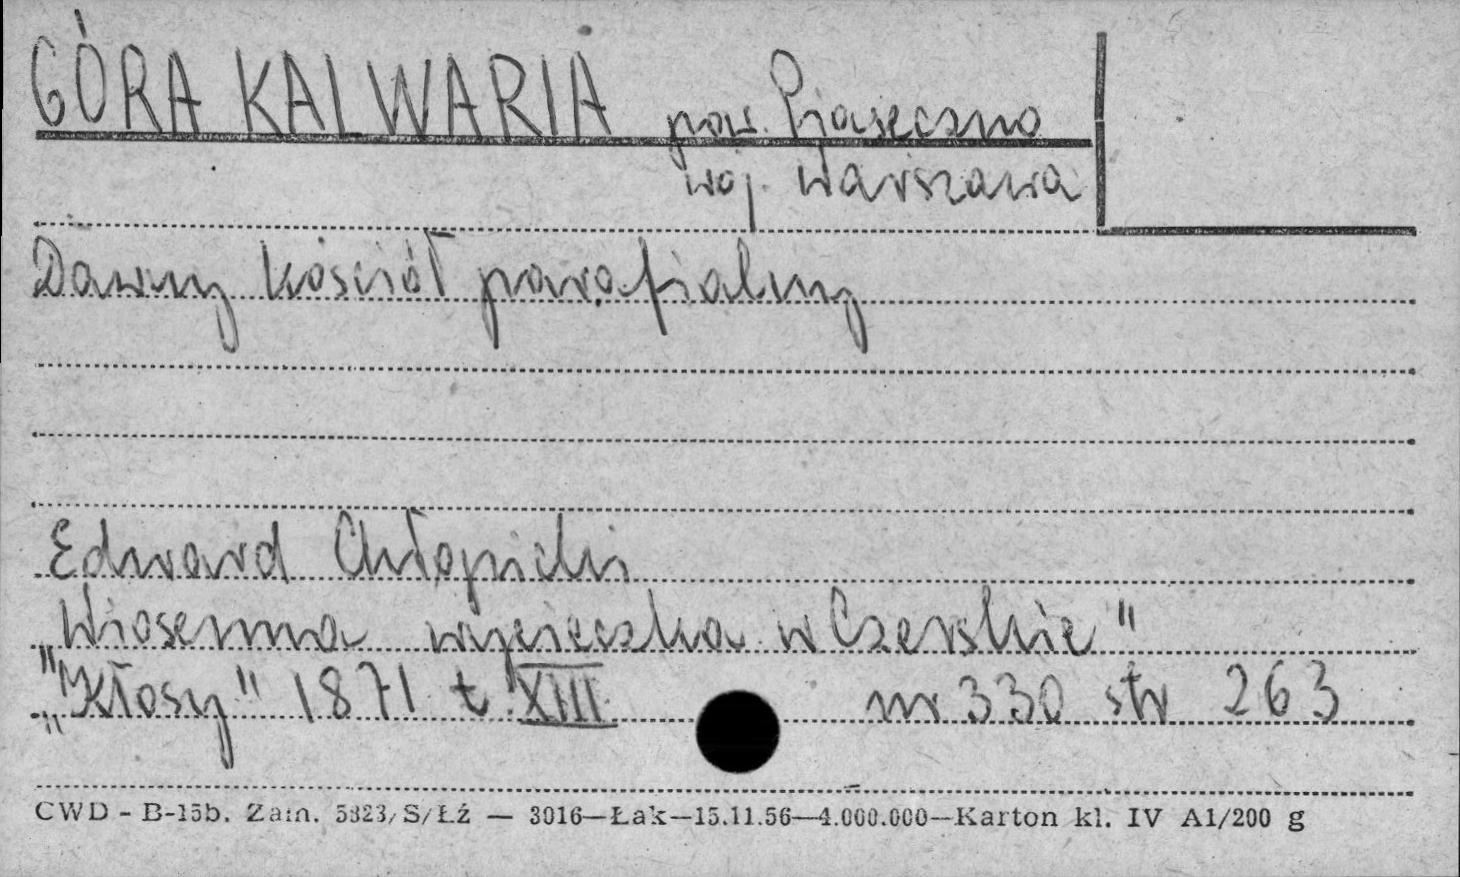 GÓRA KALWARIA pow. Piaseczno
woj. Warszawa
Dawny kościół parafialny
Edward Chłopicki
„Wiosenna wycieczka w Czerskie"
„Kłosy" 1871 t. XIII nr 330 str 263
CWD - B-15b. Zam. 5823/S/Łź — 3016—Łak—15.11.56—4.000.000—Karton kl. IV A1/200 g